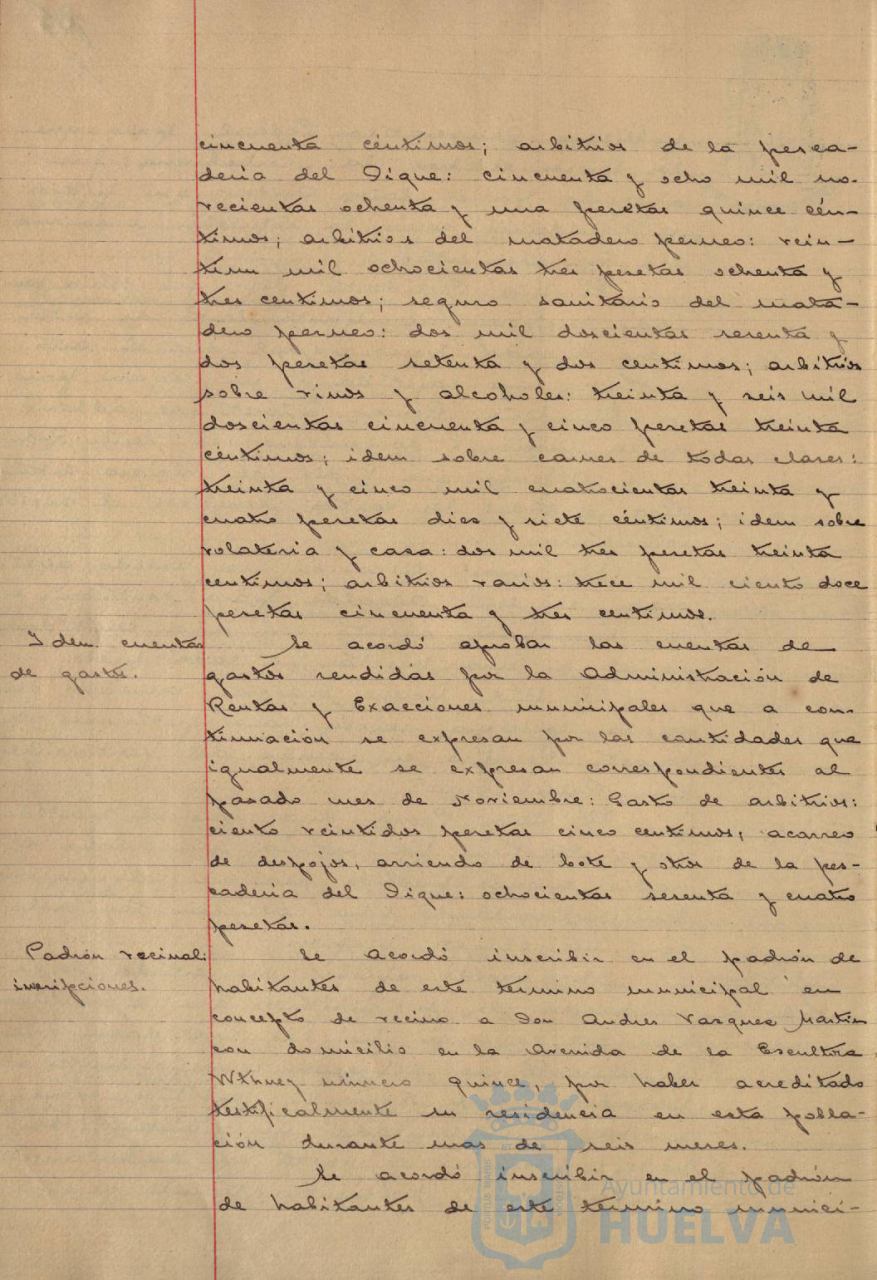 cincuenta céntimos; arbitrios de la pesca-
deria del Dique: cincuenta y ocho mil no-
vecientas ochenta y una pesetas quince cén-
timos; arbitrios del matadero permeo: vein-
tiun mil ochocientas tres pesetas ochenta y
tres centimos; seguro sanitario del mata-
dero permeo: dos mil doscientas sesenta y
dos pesetas setenta y dos centimos; arbitrios
sobre vinos y alcoholes: treinta y seis mil
doscientas cincuenta y cinco pesetas treinta
céntimos; idem sobre carnes de todas clases:
treinta y cinco mil cuatrocientas treinta y
cuatro pesetas dies y siete céntimos; idem sobre
volateria y casa: dos mil tres pesetas treinta
centimos; arbitrios varios: trece mil ciento doce
pesetas cincuenta y tres centimos.
Idem. cuentas
de gastos.
Se acordó aprobar las cuentas de
gastos rendidas por la Administración de
Rentas y Exacciones municipales que a con-
tinuación se expresan por las cantidades que
igualmente se expresan correspondientes al
pasado mes de Noviembre: Gasto de arbitrios:
ciento veintidos pesetas cinco centimos; acarreo
de despojos, arriendo de bote y otros de la pes-
caderia del Dique: ochocientas sesenta y cuatro
pesetas.
Padrón vecinal:
inscripciones.
Se acordó inscribir en el padrón de
habitantes de este termino municipal en
concepto de vecino a Don Andres Vasquez Martin
con domicilio en la Avenida de la Escultora
Wthney número quince, por haber acreditado
testificalmente su residencia en esta pobla-
ción durante mas de seis meses.
Se acordó inscribir en el padrón
de habitantes de este termino munici-
Ayuntamiento de
HUELVA